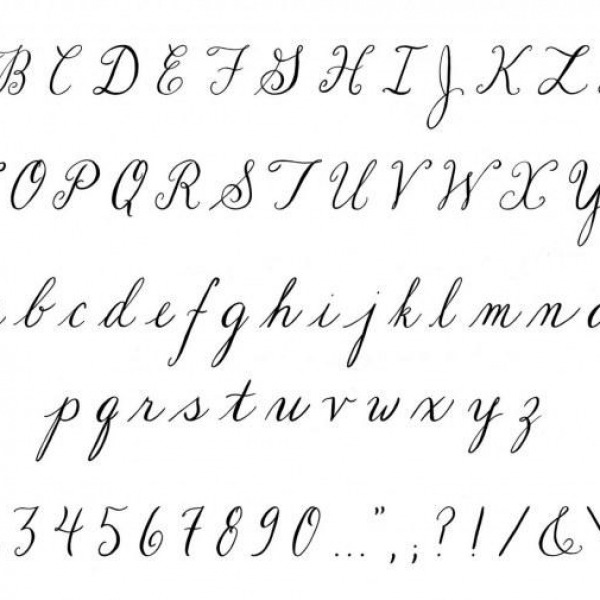 B C D E F G H I J K L
O P Q R S T U V W X Y
b c d e f g h i j k l m n
p q r s t u v w x y z
3 4 5 6 7 8 9 0 ... " , ; ? ! / &